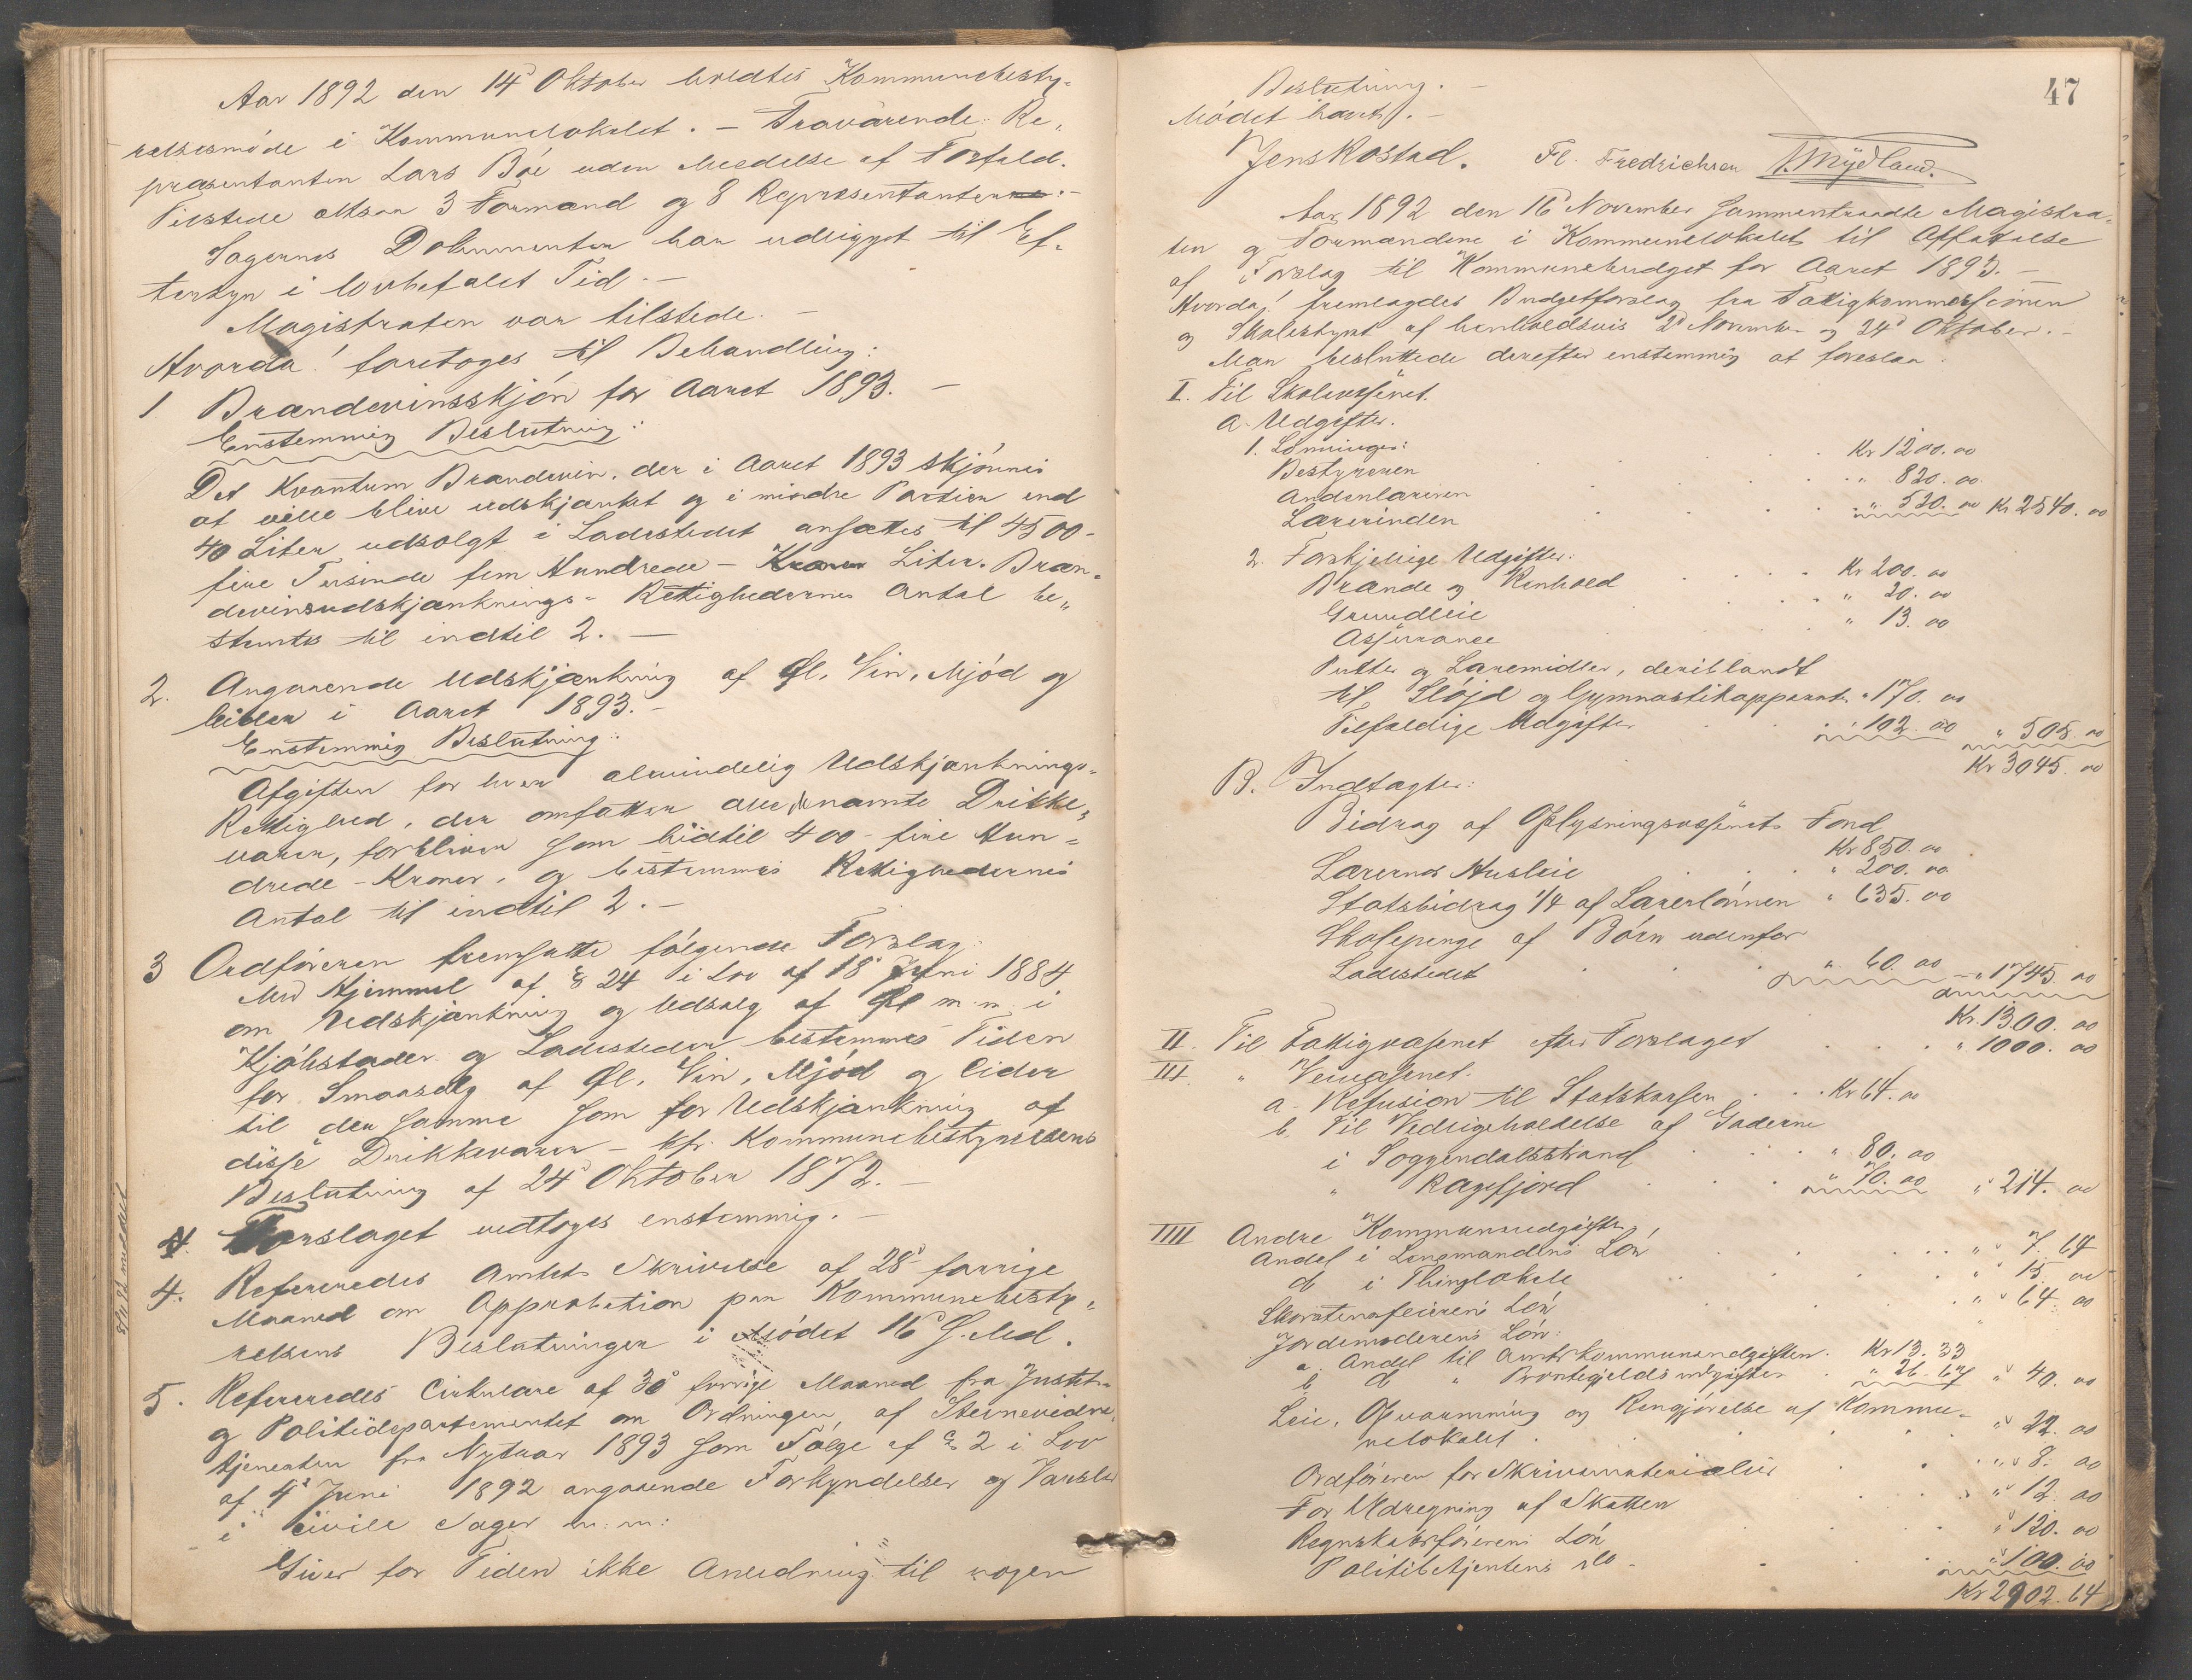 Aar 1892 den 14d Oktober holdtes Kommunebesty-
relsesmøde i Kommunelokalet. - Fraværende: Re-
præsentanten Lars Bøe uden Meddelse af Forfald.
Tilstede altsaa 3 Formænd og 8 Repræsentanter. -
Sagernes Dokumenter har udligget til Ef-
tersyn i lovbefalet Tid. -
Magistraten var tilstede. -
Hvorda! foretoges til Behandling:
1 Brændevinsskjøn for Aaret 1893. -
Enstemmig Beslutning:
Det Kvantum Brændevin, der i Aaret 1893 skjønnes
at ville blive udskjænket og i mindre Partier end
40 Liter udsolgt i Ladestedet ansættes til 4500 -
fire Tusinde fem Hundrede - Liter. Bræn-
devinsudskjænknings-Rettighedernes Antal be-
stemtes til indtil 2. -
2. Angaaende Udskjænkning af Øl, Vin, Mjød og
Cider i Aaret 1893. -
Enstemmig Beslutning:
Afgiften for hver almindelig Udskjænknings-
Rettighed, der omfatter alle nævnte Drikke-
varer, forbliver som hidtil 400 - fire Hun-
drede - Kroner, og bestemmes Rettighedernes
Antal til indtil 2. -
3 Ordføreren fremsatte følgende Forslag:
Med Hjemmel af § 24 i Lov af 18d Juni 1884
om Udskjænkning og Udsalg af Øl m. m. i
Kjøbstader og Ladesteder bestemmes Tiden
for Smaasalg af Øl, Vin, Mjød og Cider
til den samme som for Udskjænkning af
disse Drikkevarer - kfr. Kommunebestyrelsens
Beslutning af 24d Oktober 1872. -
Forslaget vedtoges enstemmig. -
4. Refereredes Amtets Skrivelse af 28d forrige
Maaned om Approbation paa Kommunebesty-
relsens Beslutninger i Mødet 16d s. Md.
5. Refereredes Cirkulære af 30d forrige Maaned fra Justits-
og Politidepartementet om Ordningen af Stevnevidne-
tjenesten fra Nytaar 1893 som Følge af § 2 i Lov
af 4d Juni 1892 angaaende Forkyndelser og Varsler
i civile Sager m. m:
Giver for Tiden ikke Anledning til nogen
47
Beslutning. -
Mødet hævet. -
Jens Rostad. Fl. Fredrichsen Mydland.
Aar 1892 den 16d November sammentraadte Magistra-
ten og Formændene i Kommunelokalet til Affattelse
af Forslag til Kommunebudget for Aaret 1893. -
Hvorda! fremlagdes Budgetforslag fra Fattigkommissionen
og Skolestyret af henholdsvis 2d November og 24d Oktober. -
Man besluttede derefter enstemmig at foreslaa
I. Til Skolevæsenet.
A. Udgifter.
1. Lønninger:
Bestyreren Kr 1200. 00
Andenlæreren " 820. 00
Lærerinden " 520. 00 Kr 2540. 00
2. Forskjellige Udgifter:
Brænde og Renhold Kr 200. 00
Grundleie " 20. 00
Assurance " 13. 00
Pulter og Læremidler, deriblandt
til Sløjd og Gymnastikapparater " 170. 00
Tilfældige Udgifter " 102. 00 " 505. 00
Kr 3045. 00
B. Indtægter:
Bidrag af Oplysningsvæsenets Fond
Kr 850. 00
Lærernes Husleie " 200. 00
Statsbidrag 1/4 af Lærerlønnen " 635. 00
Skolepenge af Børn udenfor
Ladestedet " 60. 00 " 1745. 00
Kr. 1300. 00
II. Til Fattigvæsenet efter Forslaget " 1000. 00
III. " Veivæsenet.
a. Refusion til Statskassen Kr 64. 00
b. Til Vedligeholdelse af Gaderne
i Soggendalsstrand " 80. 00
" Rægefjord " 70. 00 " 214. 00
IIII Andre Kommuneudgifter,
Andel i Lensmandens Løn " 7. 64
do i Thinglokale " 15. 00
Skorstensfeierens Løn " 64. 00
Jordemoderens Løn:
a. Andel til Amtskommuneudgiften Kr 13. 33
b. do " Præstegjeldsudgiften " 26. 67 " 40. 00
Leie, Opvarmning og Rengjørelse af Kommu-
nelokalet " 22. 00
Ordføreren for Skrivematerialier " 8. 00
For Udregning af Skatten " 12. 00
Regnskabsførerens Løn " 120. 00
Politibetjentens do " 100. 00
Kr 2902. 64